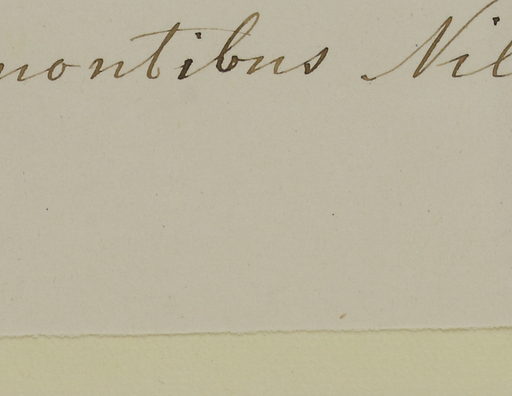 montibus Nil